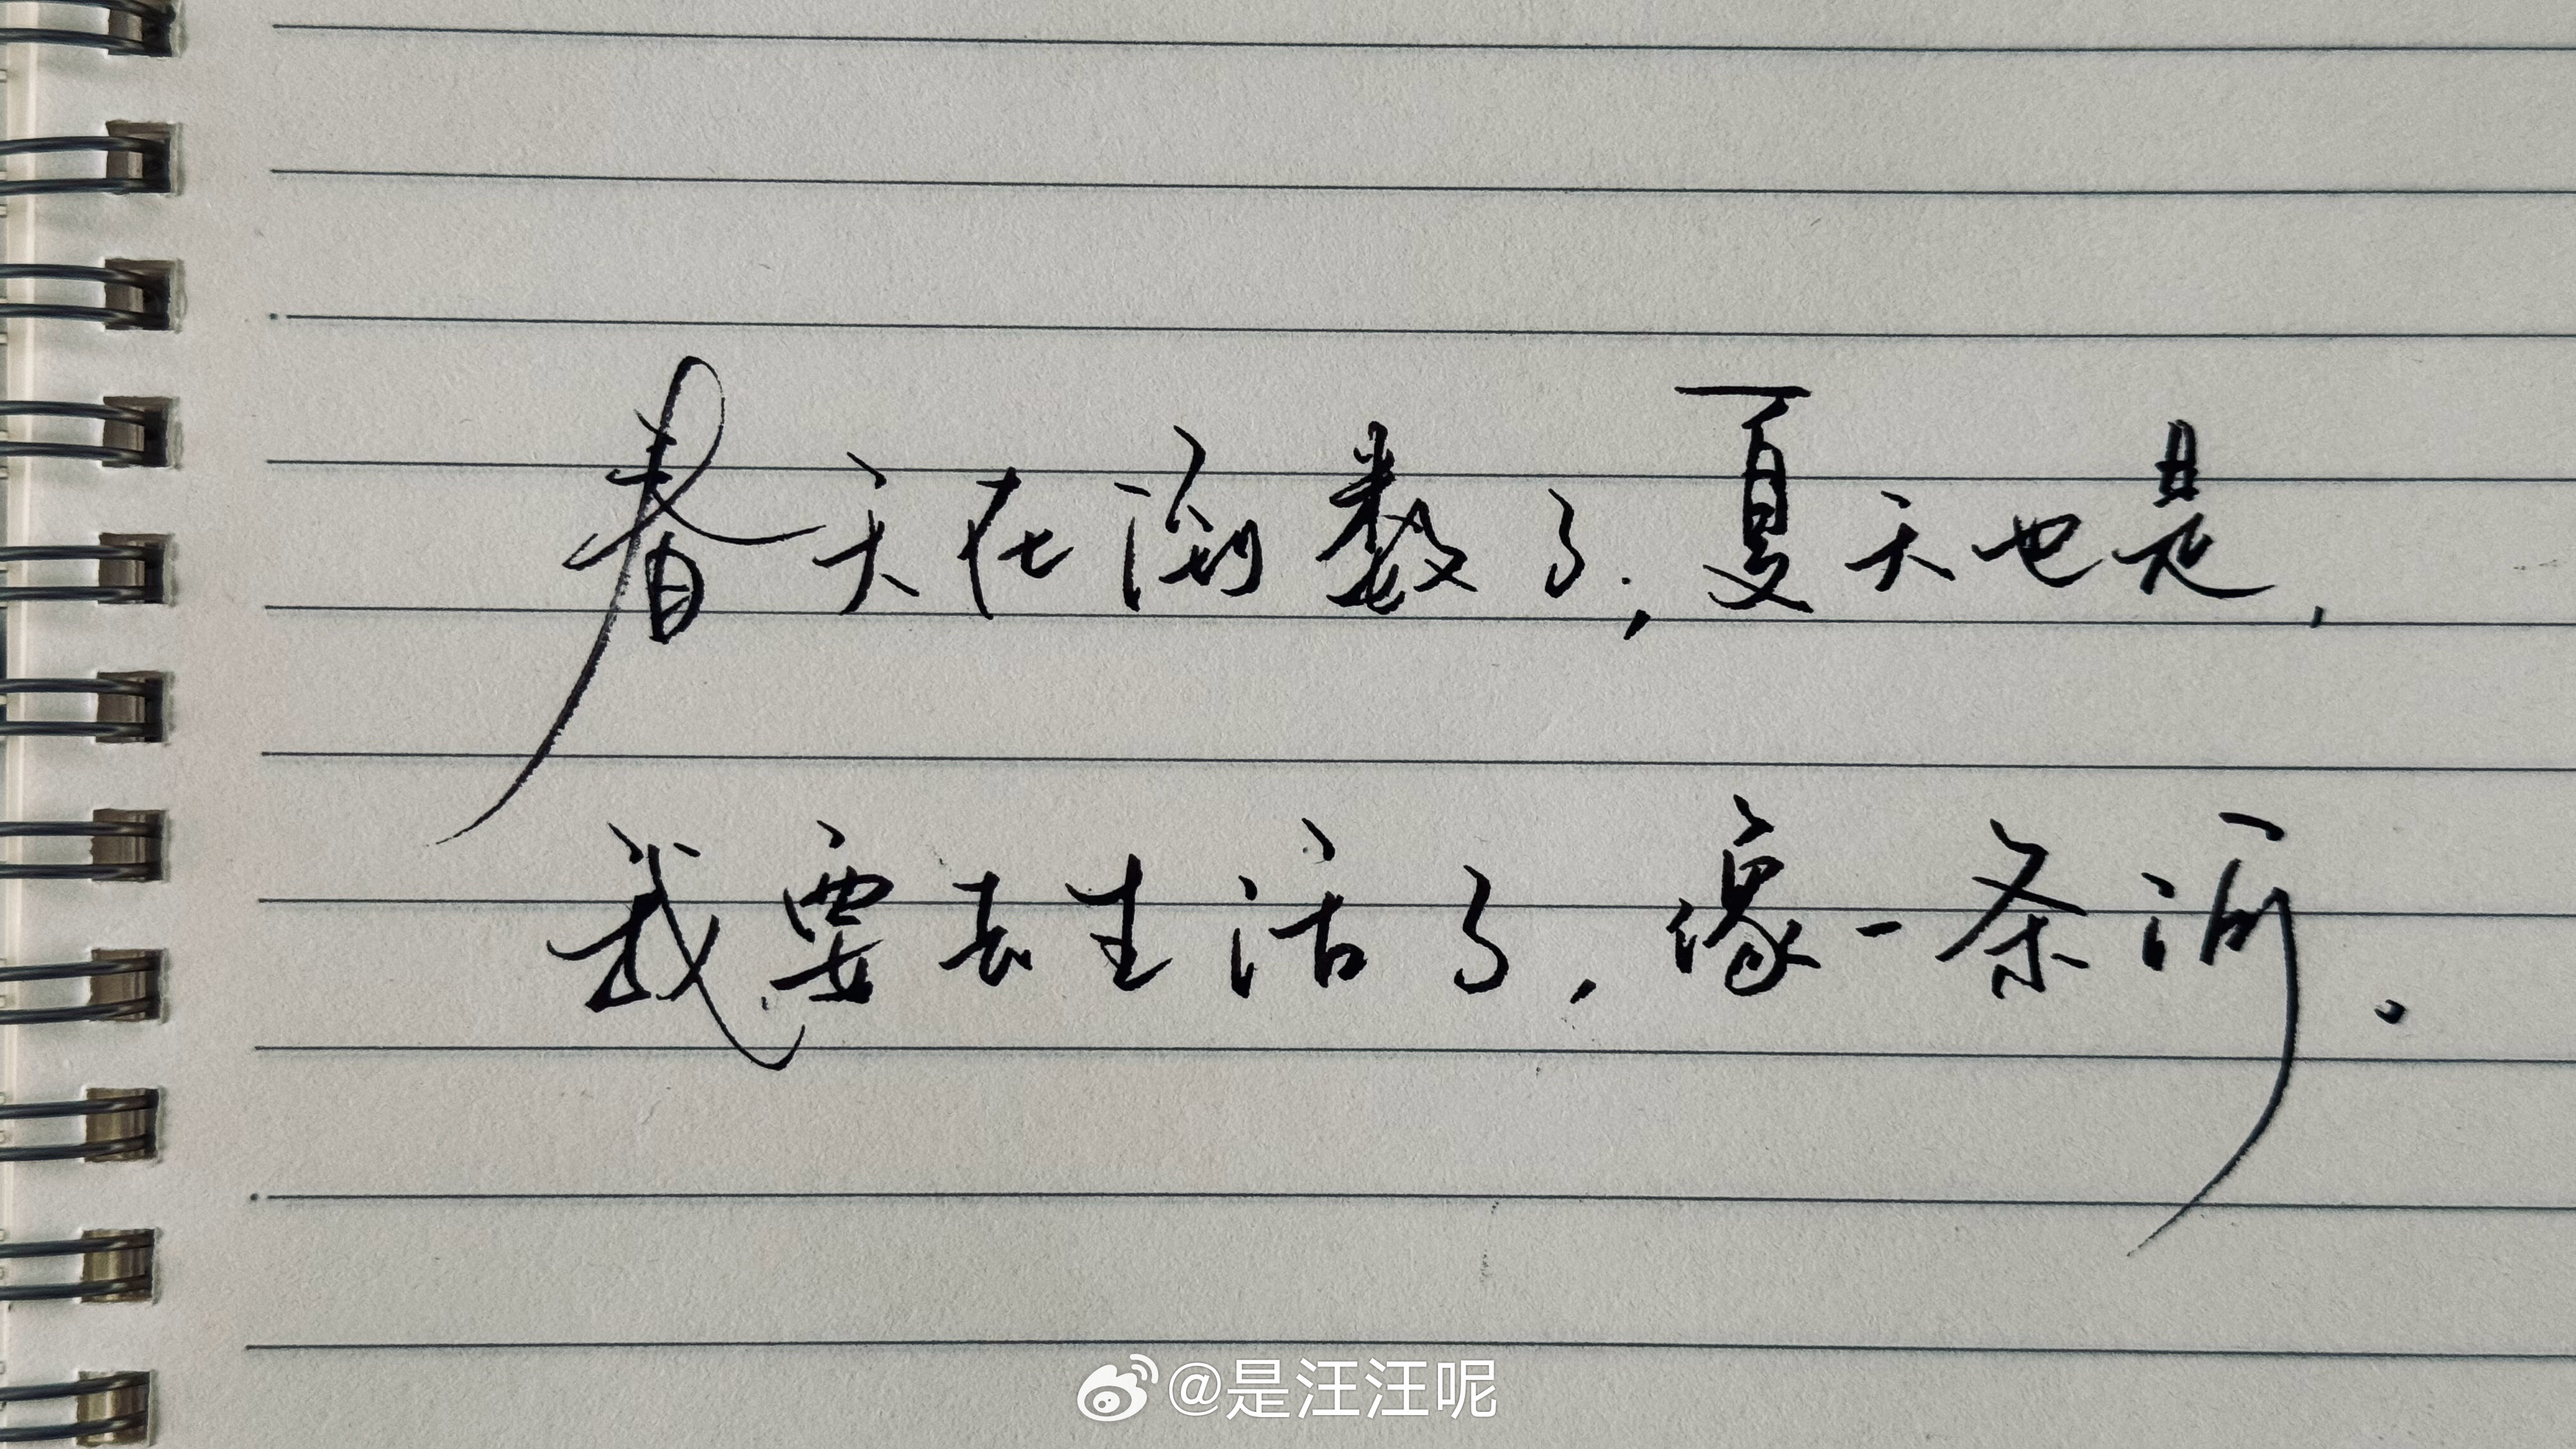 春天在倒数了；夏天也是，
我要去生活了，像一条河。
@是汪汪呢